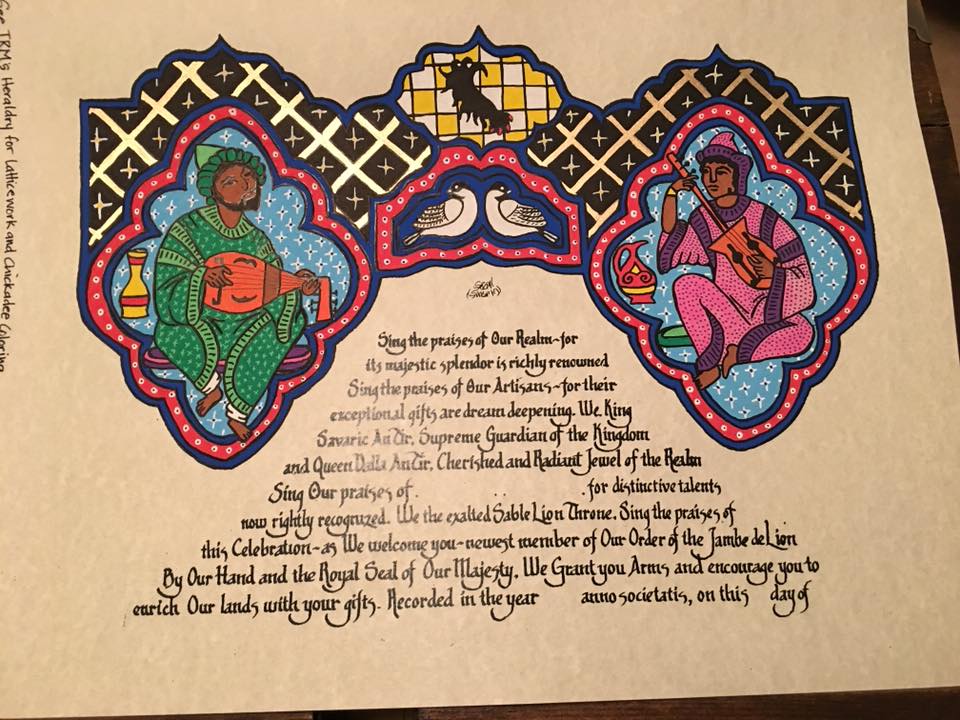 See TRM's Heraldry for Latticework and Chickadee Coloring
Sing the praises of Our Realm~for
its majestic splendor is richly renowned
Sing the praises of Our Artisans~for their
exceptional gifts are dream deepening. We, King
Savaric An Tir, Supreme Guardian of the Kingdom
and Queen Dalla An Tir, Cherished and Radiant Jewel of the Realm
Sing Our praises of . for distinctive talents
now rightly recognized. We the exalted Sable Lion Throne. Sing the praises of
this Celebration~as We welcome you~newest member of Our Order of the Jambe de Lion
By Our Hand and the Royal Seal of Our Majesty. We Grant you Arms and encourage you to
enrich Our lands with your gifts. Recorded in the year anno societatis, on this day of